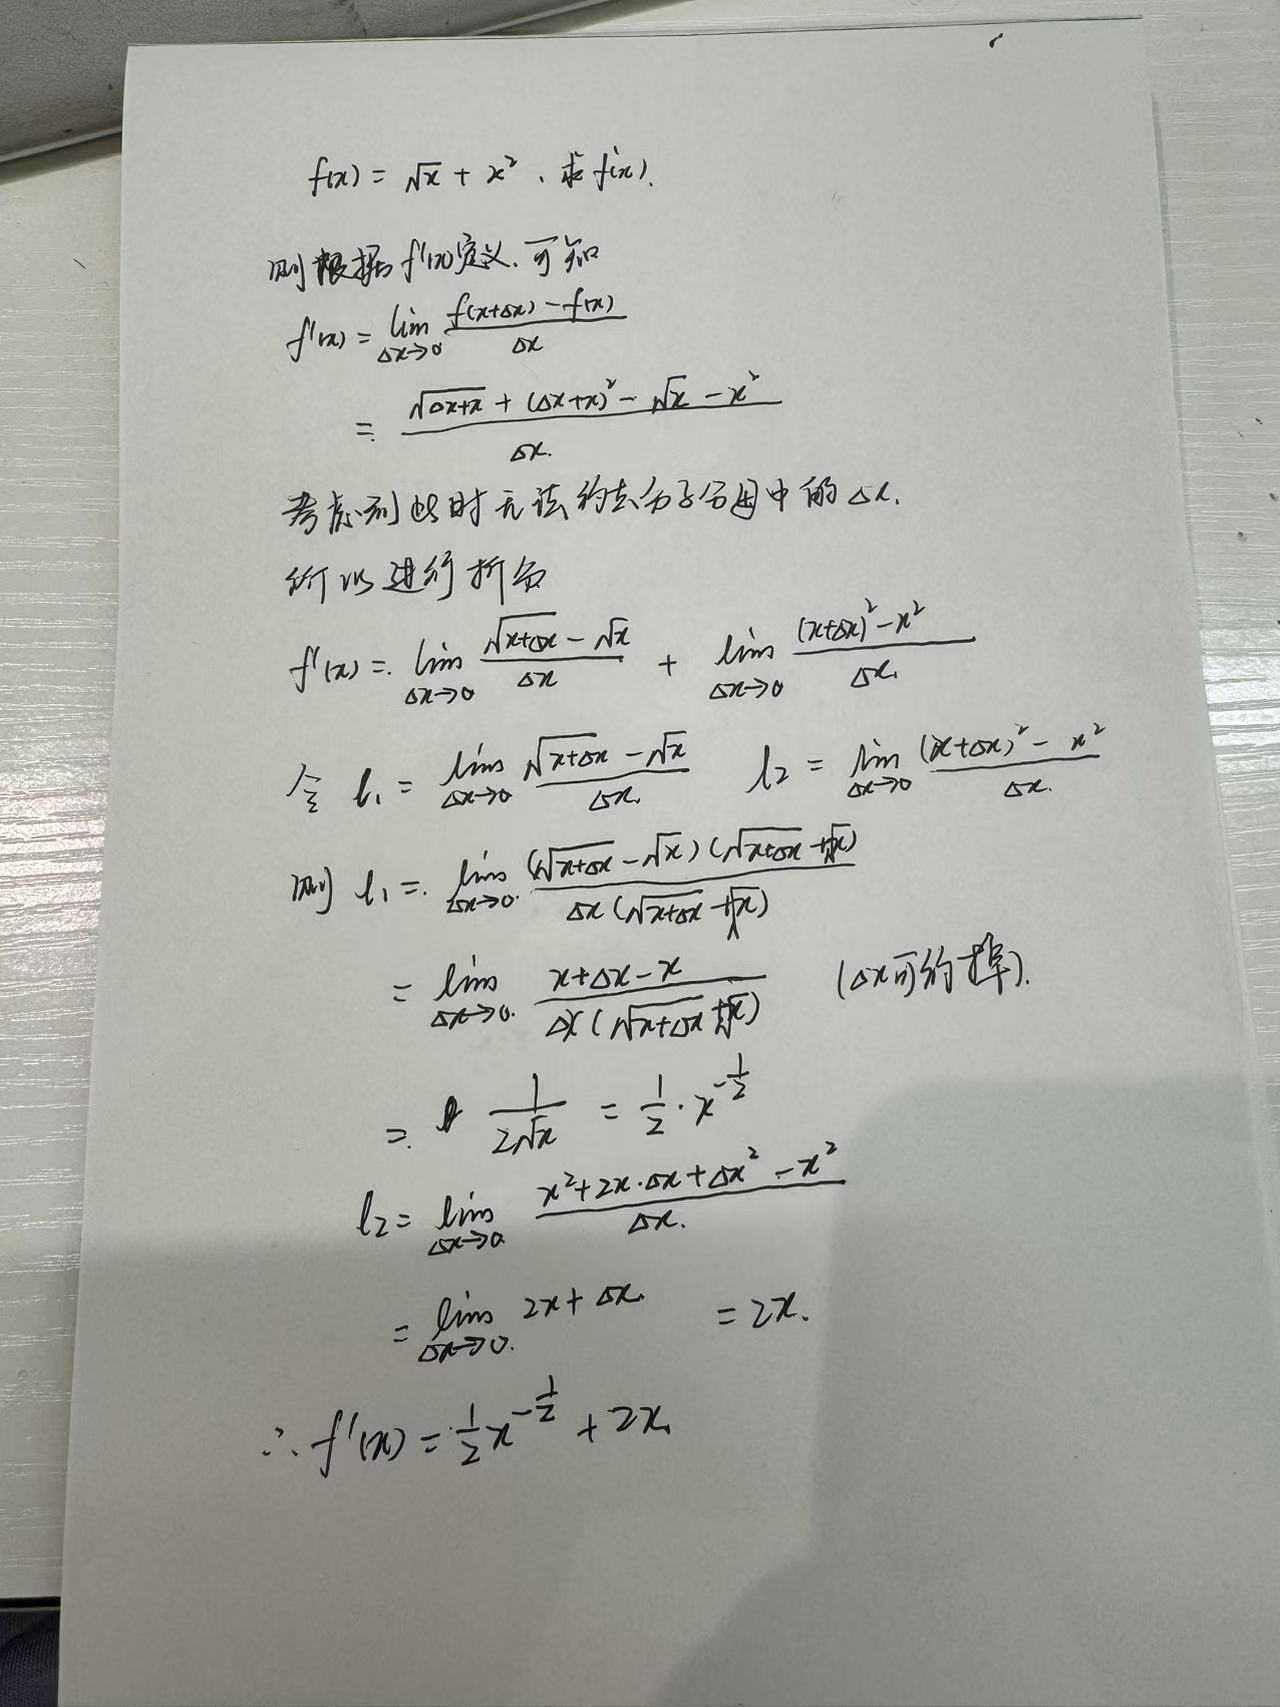 f(x) = √x + x², 求f'(x).
则根据f'(x)定义,可知
f'(x) = lim Δx→0 (f(x+Δx) - f(x)) / Δx
= (√(Δx+x) + (Δx+x)² - √x - x²) / Δx.
考虑到此时无法约去分子分母中的Δx.
所以进行拆分
f'(x) = lim Δx→0 (√(x+Δx) - √x) / Δx + lim Δx→0 ((x+Δx)² - x²) / Δx.
令 l₁ = lim Δx→0 (√(x+Δx) - √x) / Δx. l₂ = lim Δx→0 ((x+Δx)² - x²) / Δx.
则 l₁ = lim Δx→0 (√(x+Δx) - √x)(√(x+Δx) + √x) / Δx(√(x+Δx) + √x)
= lim Δx→0 (x+Δx-x) / Δx(√(x+Δx) + √x) (Δx可约掉).
= 1 / 2√x = 1/2 · x^(-1/2)
l₂ = lim Δx→0 (x² + 2x·Δx + Δx² - x²) / Δx.
= lim Δx→0 2x + Δx = 2x.
∴ f'(x) = 1/2 x^(-1/2) + 2x